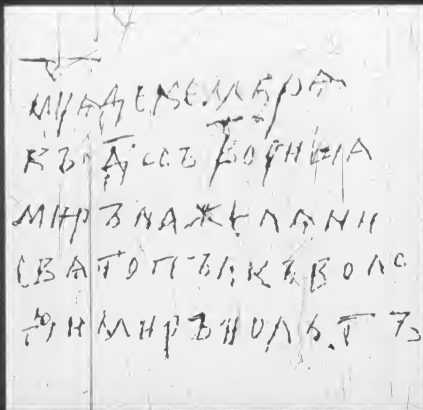 МЦАДЕКЕМБРѦ
ВЪ Д҃ ЕСЪТВОРИША
МИРЪНАЖЕЛѦНИ
СВѦТОПЪЛКЪВОЛО
ДИМИРЪИОЛЬГЪ